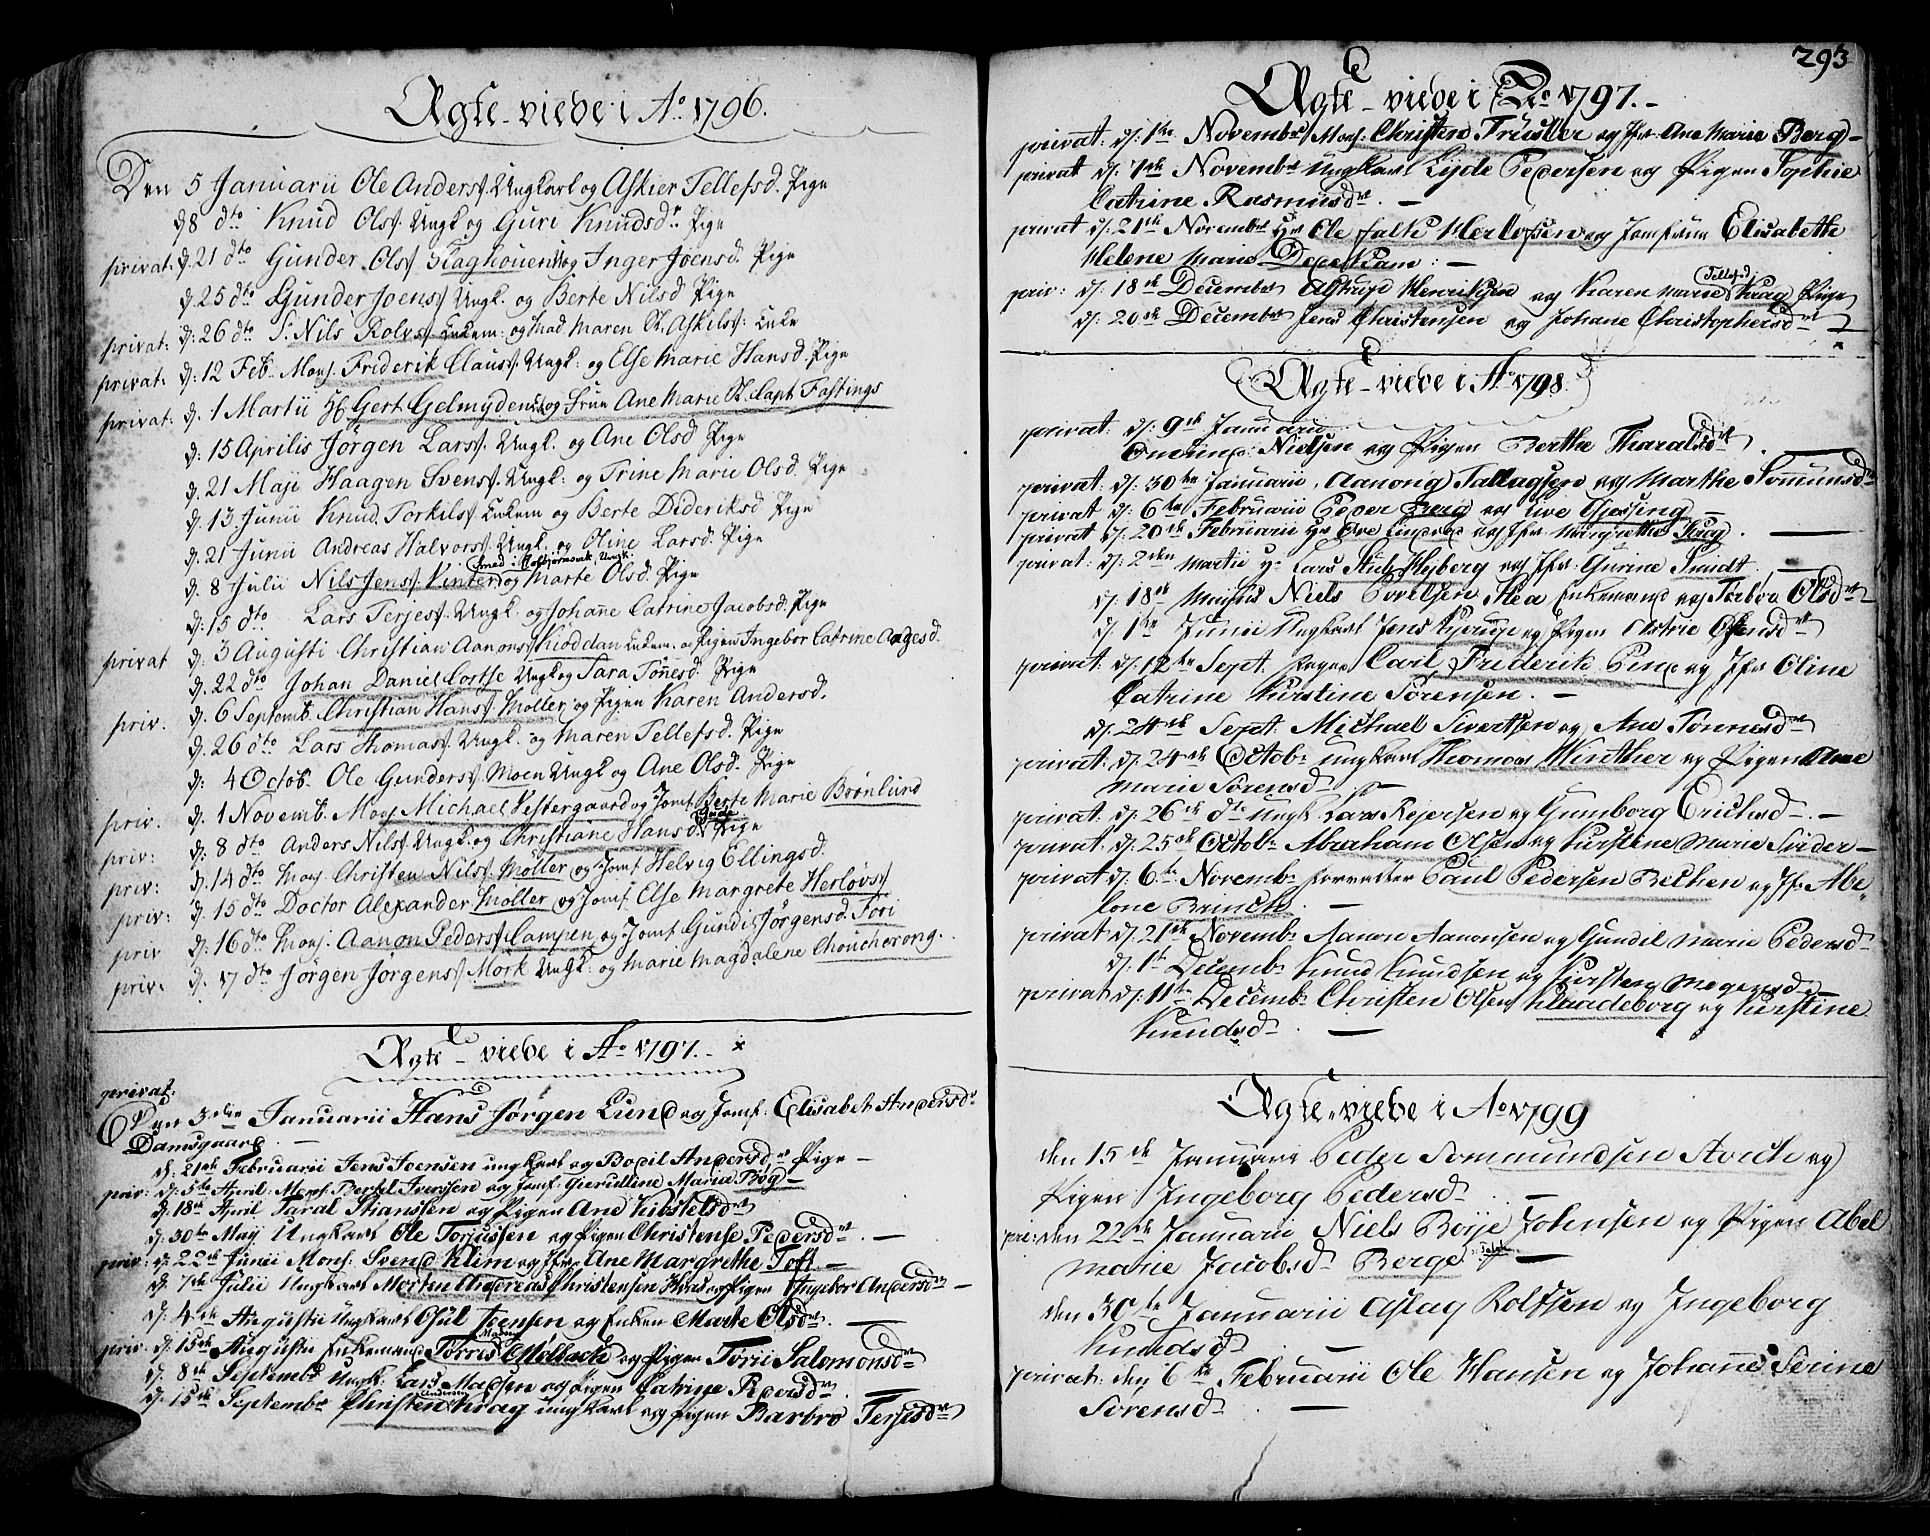 Ægte-viede i Ao 1796.
Den 5 Januarii Ole Anders. Ungkarl og Askier Tellefsd. Pige
d. 8 dto Knud Ols. Ungk og Guri Knudsdr. Pige
privat: d. 21 dto Gunder Ols Inger Joensd. Pige
d. 25 dto Gunder Joens Ungk. og Berte Nilsd Pige
privat: d: 26 dto S. Nils Rolvs Enkem: og Mad. Maren Askils: Enke
privat: d: 12 Feb. Mons. Friderik Claus. Ungk: og Else Marie Hansd. Pige
privat: d. 1 Martii Gert Gelmyden og Frue Ane Marie Capt Fastings
d: 15 Aprilis Jörgen Lars. Ungk. og Ane Olsd Pige
d. 21 Maji Haagen Svens. Ungk: og Trine Marie Olsd. Pige
d. 13. Junii Knud Torkils Enkem og Berte Dideriksd Pige
d. 21 Junii Andreas Halvors Ungk. og Oline Larsd. Pige
d. 8 Julii Nils Jens Vinter og Marte Olsd. Pige
d: 15 dto Lars Terjes Ungk. og Johane Catrine Jacobsd. Pige
privat d: 3 Augusti Christian Aanons Kiöddan Enkem. og Pigen Ingebor Catrine Aagesd.
d. 22 dto Johan Daniel Costse Ungk og Sara Tönesd. Pige
priv. d. 6 Septemb. Christian Hans Moller og Pigen Karen Andersd.
d. 26 dto Lars Thomas Ungk. og Maren Tellefsd. Pige
d: 4 Octob. Ole Gunders Moen Ungk og Ane Olsd. Pige
priv. d. 1 Novemb. Mons Michael Vestergaard og Jomf Berte Marie Brønlund
priv: d: 8 dto Anders Nils Ungk. og Christiane Hansd. Pige
priv: d. 14 dto Mons. Christen Nils Möller og Jomf Helvig Ellingsd.
priv: d. 15 dto Doctor Alexander Möller og Jomf. Else Margrete Herlövs
priv d: 16 dto Mons. Aanon Peders Campen og Jomf Gundil Jörgensd. Tori
priv: d. 17 dto Jörgen Jörgens Mörk Ungk: og Marie Magdalene Chouchorong.
Ægte-viede i Ao 1797.
privat.
Den 3die Januarii Hans Jørgen Lund og Jomf: Elisabet Andersdr
Damsgaard.
d: 21de Februarii Jens Joensen ungkarl og Bodil Andersdr Pige
priv: d: 5te April: Mons. Bertel Iverssen og Jomf. Gierulline Maria Bög
d: 18de April Taral Hanssen og Pigen Ane Kirstelsdr
d: 30te May Ungkarl Ole Torjussen og Pigen Christense Pedersdr.
priv: d. 22de Junii Mons: Svend Klim og Jfr Ane Margrethe Toft.
d. 7de Julii Ungkarl Morten Andreas Christensen og Pigen Ingebor Andersdr
d: 4de Augustii Ungkarl Joensen og Enken Marte Olsdr.
priv: d: 15de Augustii Enkemand Torris Mølback og Pigen Torii Salomonsdr
d: 8de Septembr Ungk: Lars Madsen og Pigen Catrine Pedersdr.
d: 15de Septembr Christen Krag ungkarl og Pigen Barbro Terjesdr
293
Ægte-viede i Ao 1797.
privat: d. 1te Novembr Mons. Christen Trusler og Jfr: Ane Marie Berg
privat d. 7de Novembr Ungkarl Lyde Pedersen og Pigen Sophie
Catrine Rasmusdr.
privat d. 21de Novembr Hr Ole Falk Herlofsen og Jomfrue Elisabethe
Helene Marie
priv: d: 18de Decembr Astrup Henriksen og Karen Marie Tellefsd. Krag Pige
d: 20de Decembr Jens Christensen og Johane Christophersdr
Ægte-viede i Ao 1798.
privat: d: 9de Januarii
Nielsen og Pigen Berthe Haralsdr.
privat: d: 30te Januarii, Aanong Tallagsen og Marthe Somunsdr
privat d: 6te Februarii Peder Berg og Live Giessing
privat d: 20de Februarii Hr Ove og Jfr Margrethe Krag.
privat: d: 2den Martii Hr Lars Stub Hyberg og Jfr: Gurine Sundt.
d: 18de Niels Povelsen Enkemand og Torbor Olsdr
d: 1te Junii Ungkarl Jens og Pigen Astrie Olsensdr
privat: d. 12te Sept. Carl Frederik og Jfr Oline
Catrine Kirstine Sörensen.
d. 24de Sept. Michael Sivertsen og Ane Tönnesdr
privat: d: 24de Octobr ungkarl Thomas Winther og Pigen Ane
Marie Sörensd
privat. d: 26de dto Ungk. Lars Rejersen og Gunborg Erichsd.
privat: d: 25de Octobr Abraham Olsen og Kirstine Marie Snider
privat d: 6te Novembr Paul Pedersen Becken og Jfr Abe
lone Brinch.
privat d: 21de Novembr Aanon Aanonsen og Gundel Marie Pedersd
d: 1te Decembr Knud Knudsen og Kirsten Mogensd
privat d: 11te Decembr Christen Olsen Klaadeborg og Kirstine
Knudsd.
Ægte-viede i Ao 1799
den 15de Januarii Peder Sommundsen og
Pigen Ingeborg Pedersd.
pri: den 22de Januarii Niels Boije Johnsen og Pigen Abel
Marie Jacobsd Berge
den 30te Januarii Aslag Rolfsen og Ingeborg
Knudsd.
privat: den 6te Februarii Ole Hansen og Johanne Serine
Sörensd.